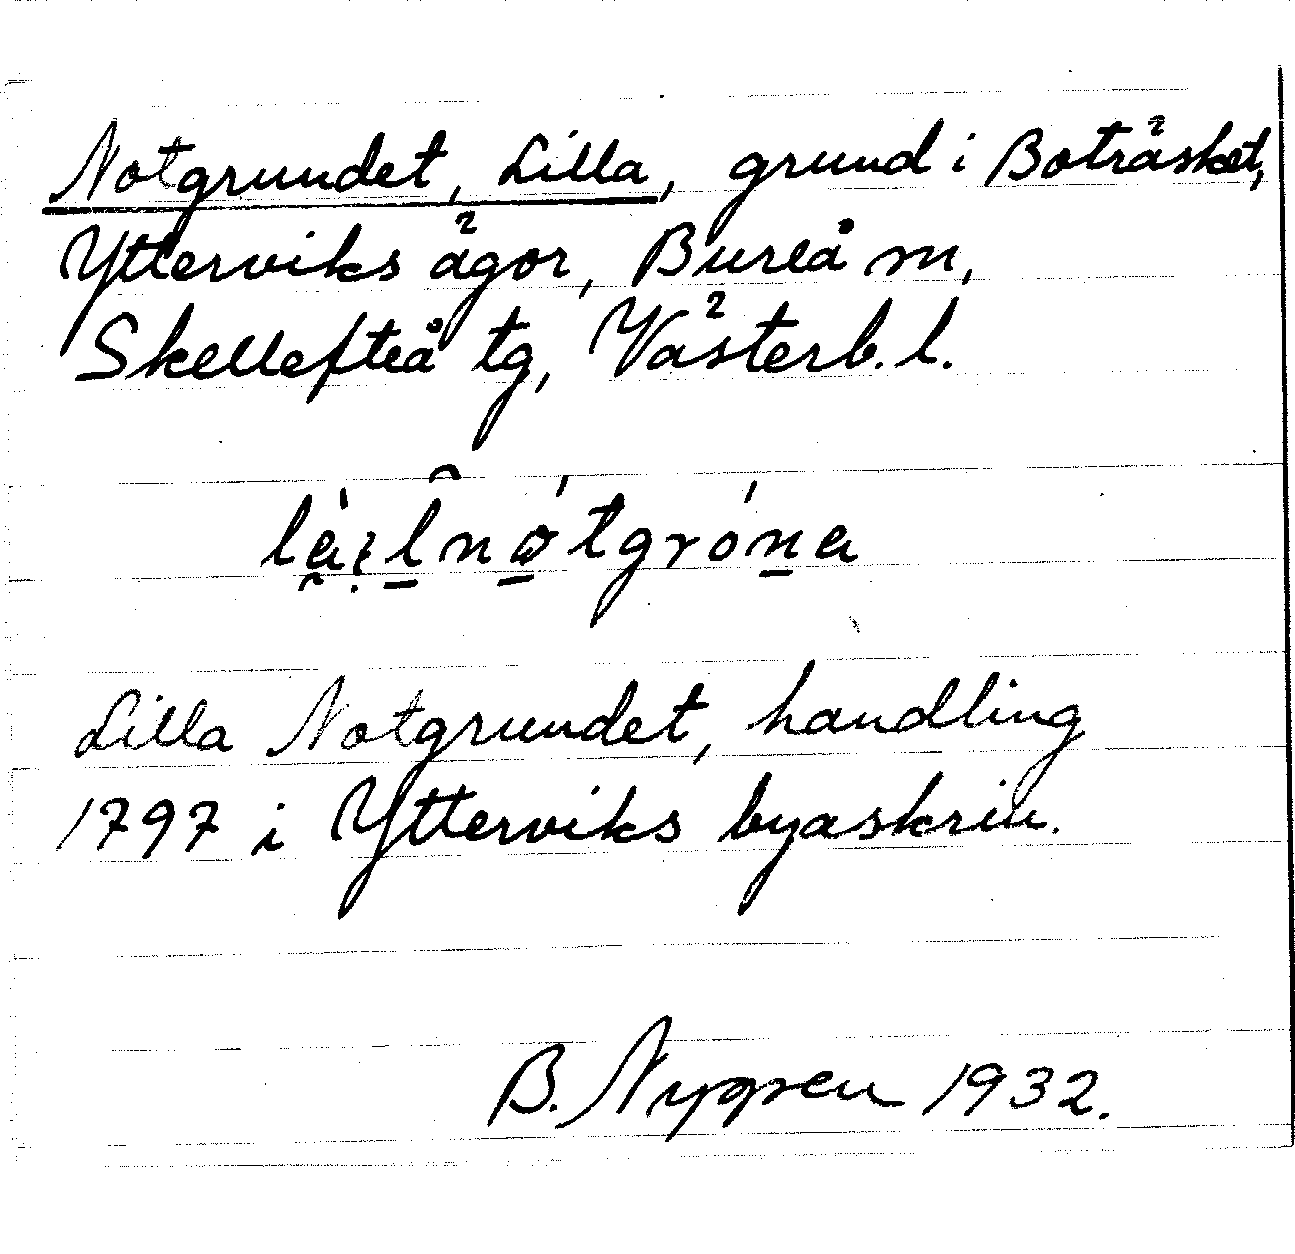 Notgrundet, Lilla, grund i Boträsket,
Ytterviks ägor, Bureå m,
Skellefteå tg, Västerb. l.
Lilla Notgrundet, handling
1797 i Ytterviks byaskrin.
B. Nygren 1932.